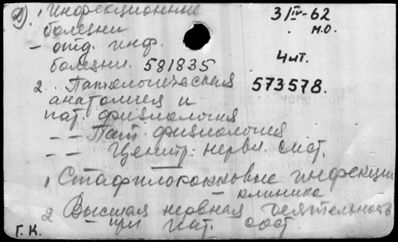 Д). 1 Инфекционные 3/IV-62
болезни м.о.
– отд. инф.
болезни. 581835 4 шт.
2. Патологическая 573578.
анатомия и
пат. физиология
– – Пат. физиология
– – Центр. нервн. сист.
1 Стафилококковые инфекции
– клиника
2 Высшая нервная деятельность
при пат. сост
Г. К.